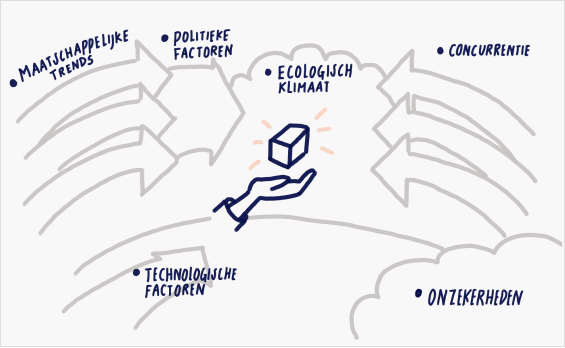 • MAATSCHAPPELIJKE
TRENDS
• POLITIEKE
FACTOREN
• ECOLOGISCH
KLIMAAT
• CONCURRENTIE
• TECHNOLOGISCHE
FACTOREN
• ONZEKERHEDEN